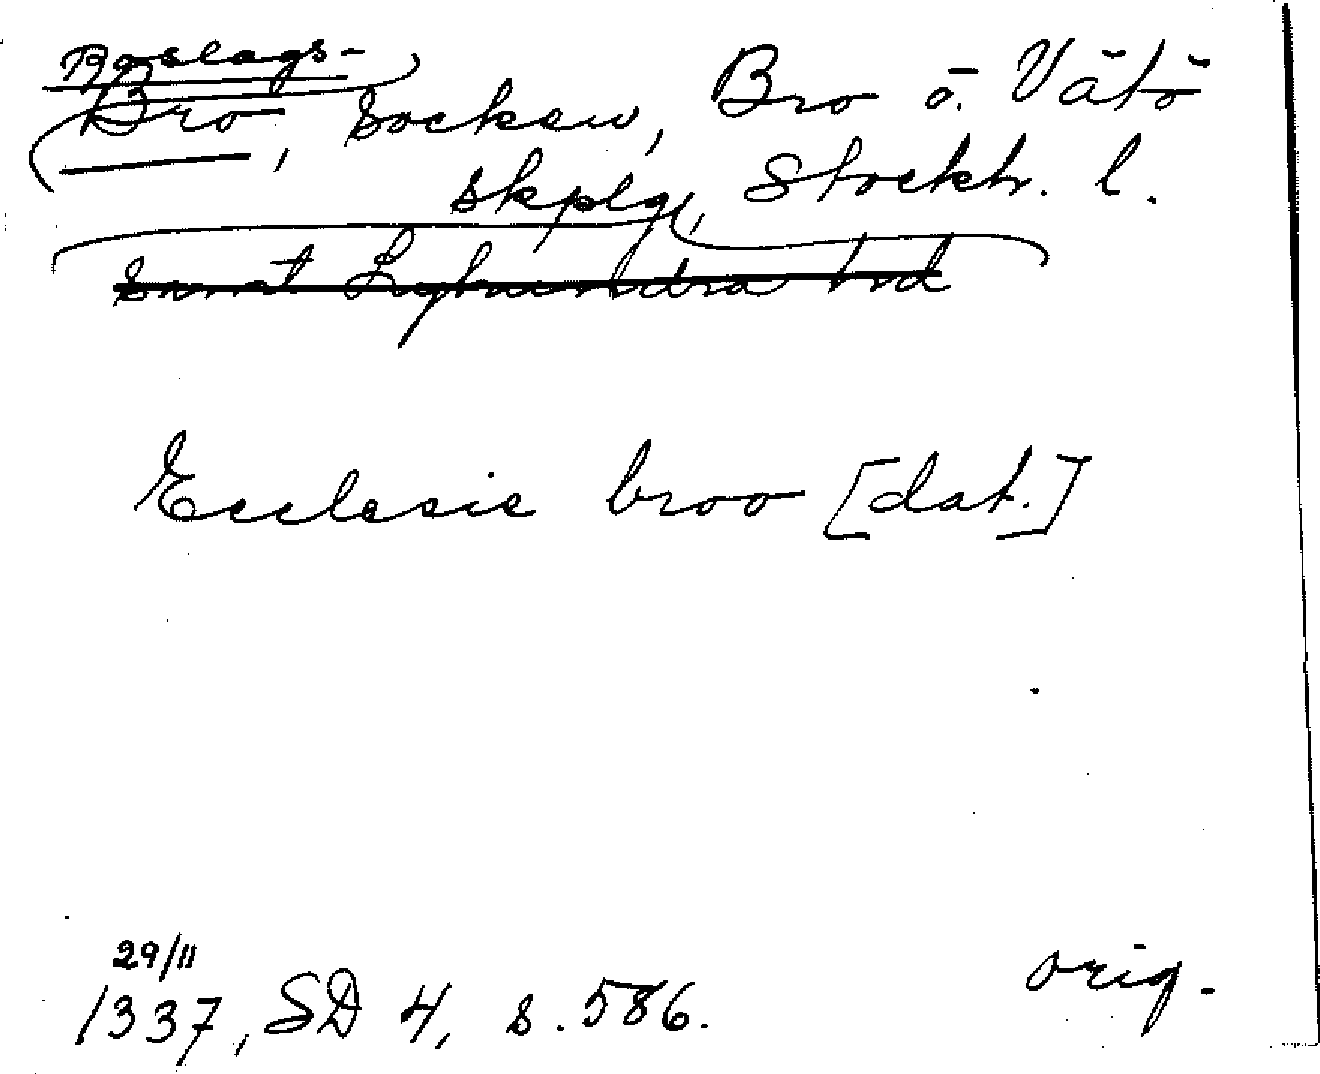 Roslags-
Bro, socken, Bro o. Vätö
skplg, Stockh. l.
samt Lyhundra hd
Ecclesie broo [dat.]
29/11
1337, SD 4, s. 586.
orig.